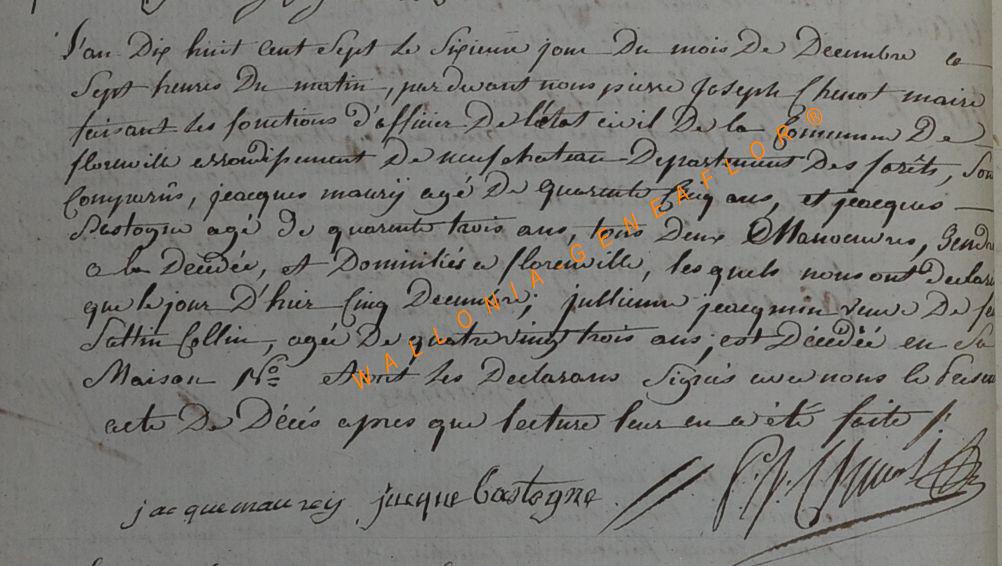 L'an Dix huit Cent Sept le Sixieme jour Du mois De Decembre a
Sept heures Du matin, par devant nous pierre Joseph Chenot maire
faisant les fonctions d'officier De l'état civil De la Commune De
florenville arrondissement De neufchateau Departement Des forêts, Sont
Comparûs, jeacques maurij agé De quarante Cinq ans, et jeacques
Bastogne agé de quarante trois ans, tous Deux Manoeuvres, Gendre
a la Decedée, et Domiciliés a florenville, les quels nous ont Declaré
que le jour D'hier Cinq Decembre, jullienne jeacqmin veuve De feu
Collin, agée De quatre vingt trois ans, est Décédée en Sa
Maison No. et ont les Declarans Signés avec nous le
acte De Décès apres que lecture leur en a été faite /.
jacque maureij jacque Bastogne P. J. Chenot
WALLONIA GENEAFLOR ®